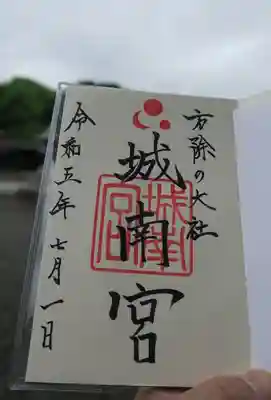 方除の大社
城南宮
城南宮印
令和五年 七月一日